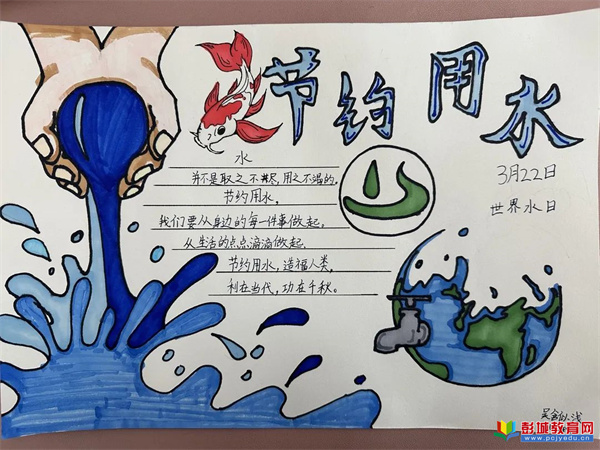 节约用水
3月22日
世界水日
水
并不是取之不尽，用之不渴的，
节约用水，
我们要从身边的每一件事做起，
从生活的点点滴滴做起，
节约用水，造福人类，
利在当代，功在千秋。
彭城教育网
www.pcjyedu.cn